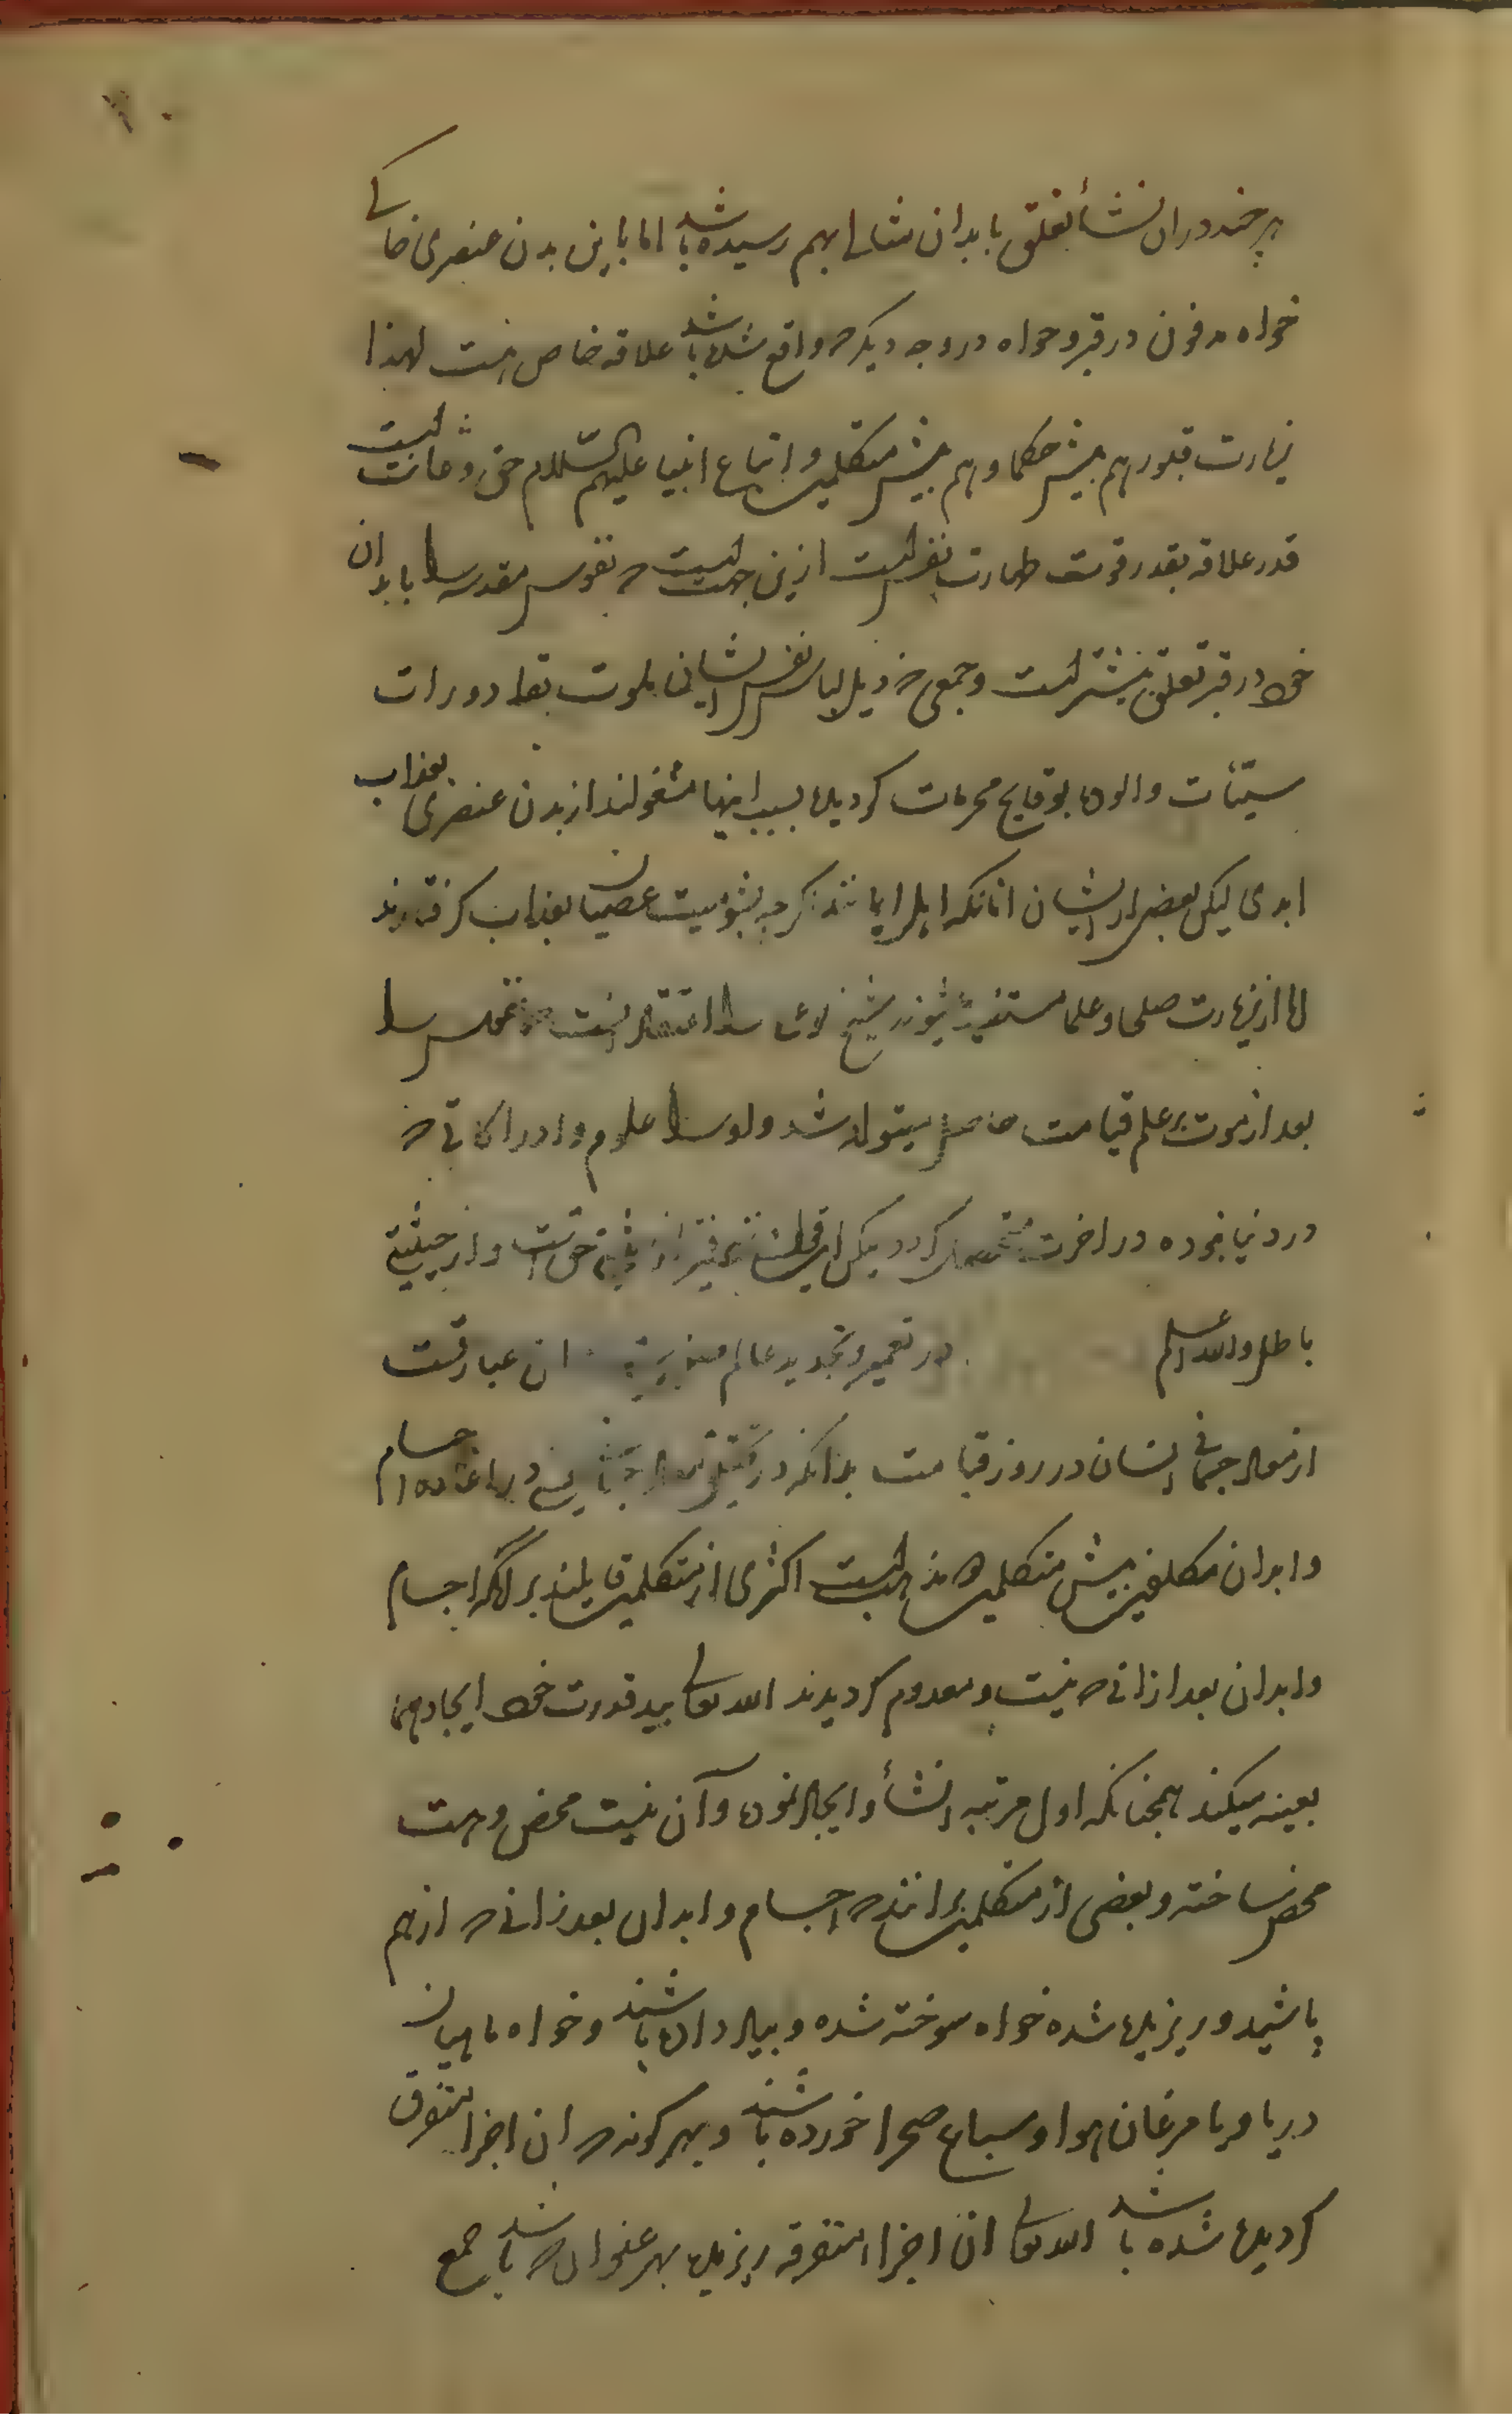 هر چند دران نشأ تعلق بابدان مثالی بهم رسیده باشد اما باین بدن عنصری خاکی
خواه مدفون در قبر و خواه در وجه دیکر که واقع شده باشد علاقه خاص هست لهذا
زیارت قبور هم پیش حکما و هم پیش متکلمین و اتباع انبیا علیهم السّلام حق و ثابت است
قدر علاقه بقدر قوت طهارت نفس است ازین جهت است که نفوس مقدسه را بابدان
خود در قبر تعلق بیشتر است و جمعی که ذیل لباس نفس ایشان ملوث بقاذورات
سیّئات و الوده بوقایح محرمات کردیده بسبب اینها مشغولند از بدن عنصری بعذاب
ابدی لیکن بعضی از ایشان انانکه اهل ایمانند کرچه بشومیت عصیان بعذاب کرفتارند
اما از زیارت صلحا و علما مستفید میشوند شیخ را اعتقاد انست که نفس را
بعد از موت بر علم قیامت حاصل میتواند شد و او را علوم و ادراکاتی که
در دنیا نبوده در اخرت متحصل کردد لیکن این قول نزد فقیر از حیثیتی حق است و از حیثیتی
باطل والله اعلم در تعمیر و تجدید عالم ان عبارتست
از معاد جسمانی انسان در روز قیامت بدانکه در یعنی در اعاده اجسام
و ابدان مکلفین پیش متکلمین دو مذهب است اکثری از متکلمین قایلند بر آنکه اجسام
و ابدان بعد از انی که نیست و معدوم کردیدند الله تعالی بید قدرت خود ایجاد همان
بعینه میکند همچنانکه اول مرتبه انشأ و ایجاد نموده و آن نیست محض و هست
محض ساخته و بعضی از متکلمین برانند که اجسام و ابدان بعد زانی که از هم
پاشید و ریزیده شده خواه سوخته شده و بباد داده باشند و خواه ماهیان
دریا و یا مرغان هوا و سباع صحرا خورده باشند و بهر کونه که ان اجزا متفرق
کردیده شده باشد الله تعالی ان اجزا متفرقه ریزیده بهر عنوان که باشد جمع